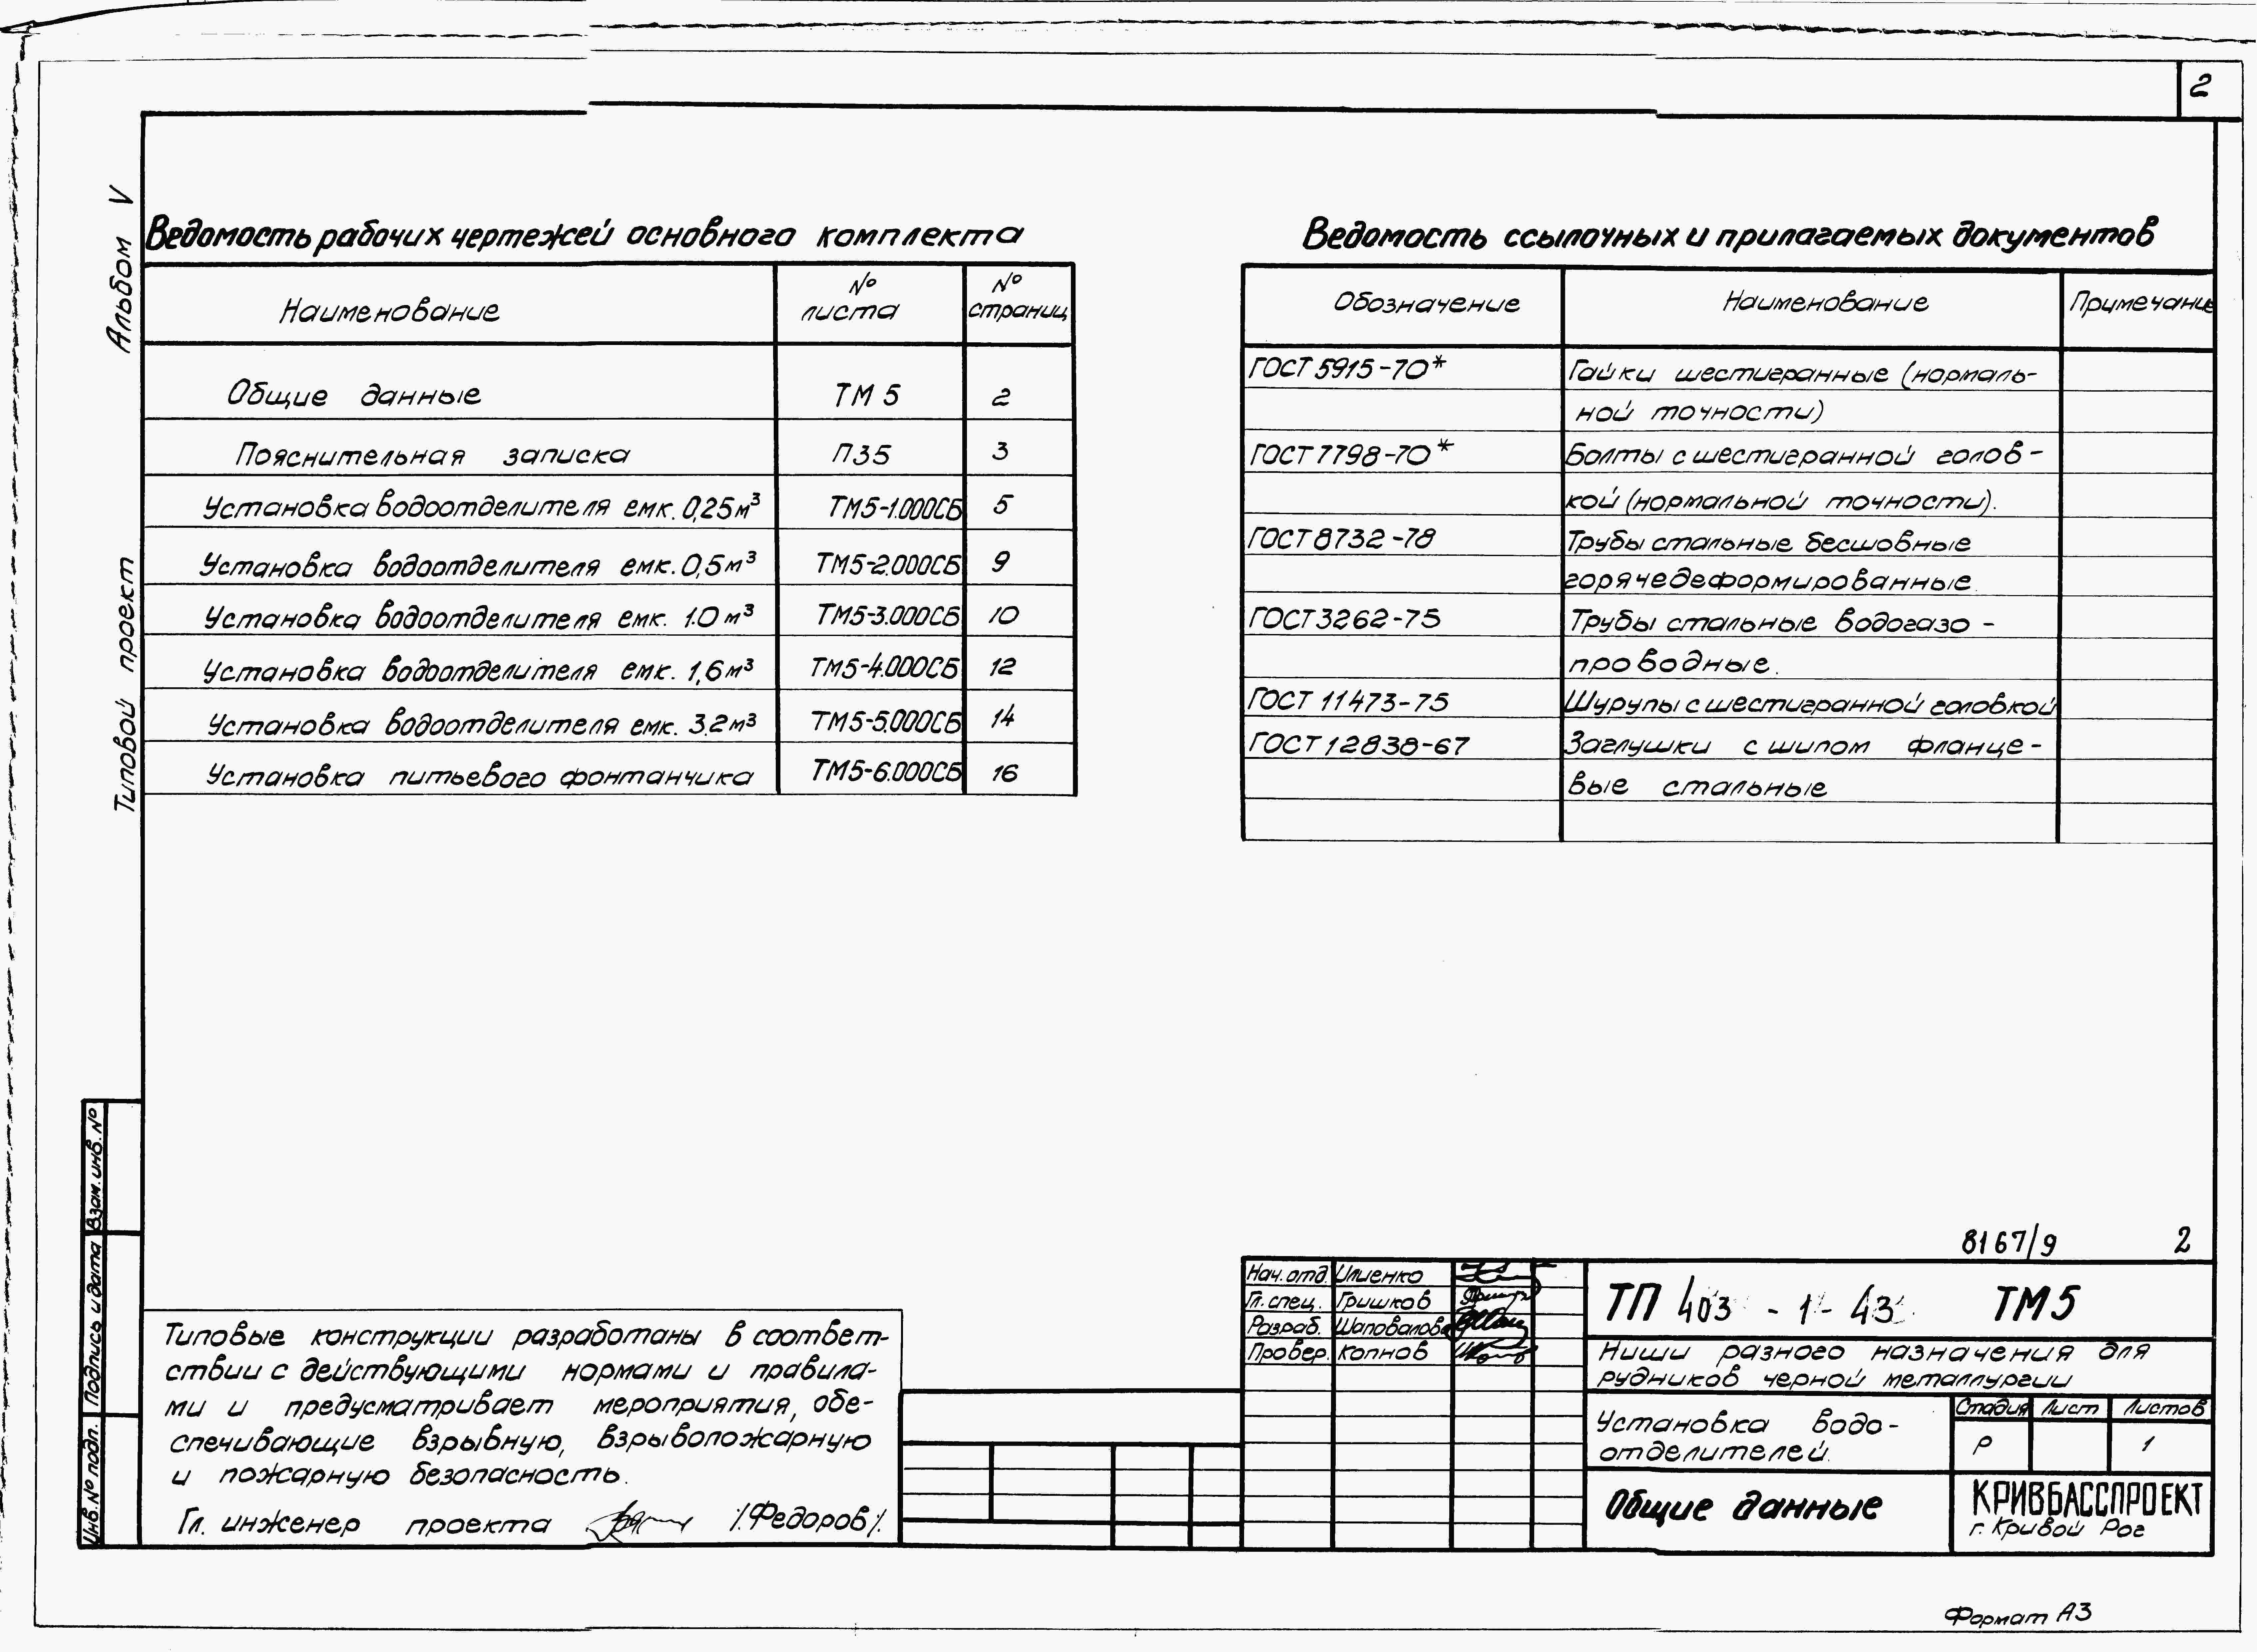 2
Альбом V
Типовой проект
Ведомость рабочих чертежей основного комплекта
Наименование № листа № страниц
Общие данные ТМ 5 2
Пояснительная записка ПЗ5 3
Установка водоотделителя емк. 0,25м³ ТМ5-1.000СБ 5
Установка водоотделителя емк. 0,5м³ ТМ5-2.000СБ 9
Установка водоотделителя емк. 1.0 м³ ТМ5-3.000СБ 10
Установка водоотделителя емк. 1,6м³ ТМ5-4.000СБ 12
Установка водоотделителя емк. 3.2м³ ТМ5-5.000СБ 14
Установка питьевого фонтанчика ТМ5-6.000СБ 16
Ведомость ссылочных и прилагаемых документов
Обозначение Наименование Примечание
ГОСТ 5915-70* Гайки шестигранные (нормаль-
ной точности)
ГОСТ 7798-70* Болты с шестигранной голов-
кой (нормальной точности).
ГОСТ 8732-78 Трубы стальные бесшовные
горячедеформированные.
ГОСТ 3262-75 Трубы стальные водогазо-
проводные.
ГОСТ 11473-75 Шурупы с шестигранной головкой
ГОСТ 12838-67 Заглушки с шипом фланце-
вые стальные
Взам. инв. №
Подпись и дата
Инв. № подл.
Типовые конструкции разработаны в соответ-
ствии с действующими нормами и правила-
ми и предусматривает мероприятия, обе-
спечивающие взрывную, взрывопожарную
и пожарную безопасность.
Гл. инженер проекта /.Федоров/.
8167/9 2
Нач. отд. Илиенко
Гл. спец. Гришков
Разраб. Шаповалова
Провер. Копнов
ТП 403 - 1 - 43 ТМ5
Ниши разного назначения для
рудников черной металлургии
Установка водо-
отделителей.
Стадия Лист Листов
Р 1
Общие данные
КРИВБАССПРОЕКТ
г. Кривой Рог
Формат А3